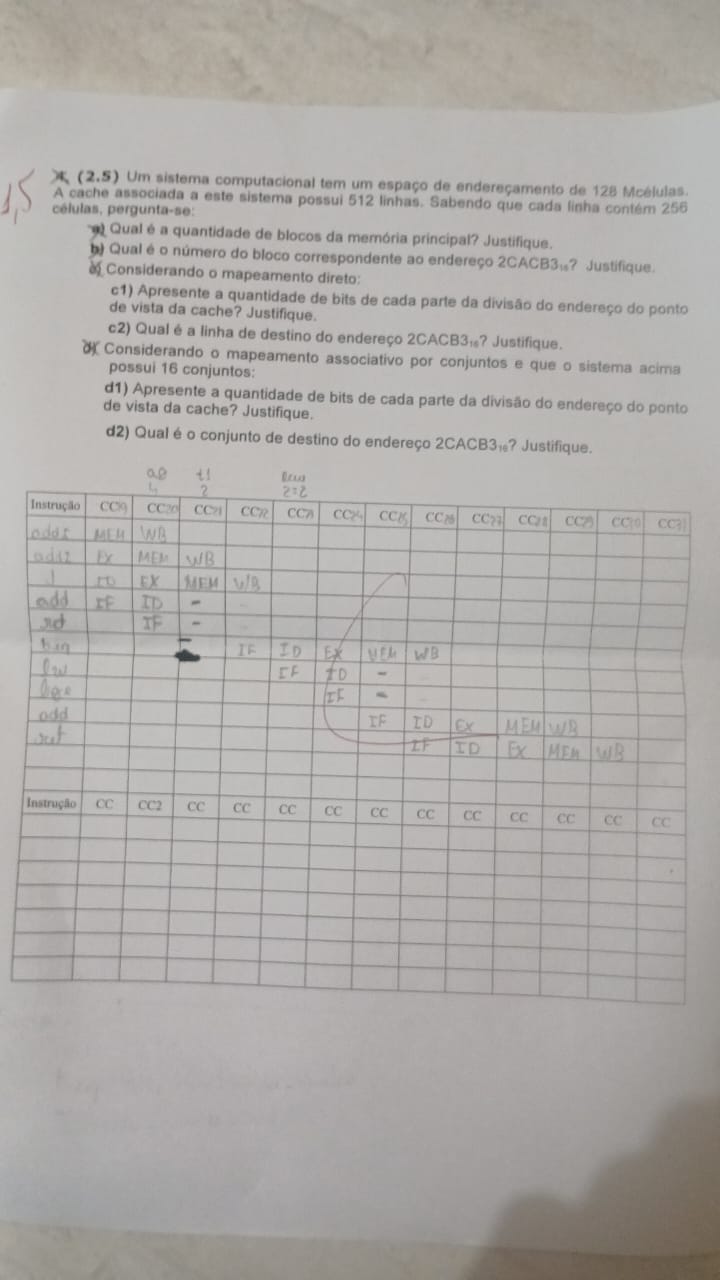 1,5
(2.5) Um sistema computacional tem um espaço de endereçamento de 128 Mcélulas.
A cache associada a este sistema possui 512 linhas. Sabendo que cada linha contém 256
células, pergunta-se:
a) Qual é a quantidade de blocos da memória principal? Justifique.
b) Qual é o número do bloco correspondente ao endereço 2CACB3₁₆? Justifique.
c) Considerando o mapeamento direto:
c1) Apresente a quantidade de bits de cada parte da divisão do endereço do ponto
de vista da cache? Justifique.
c2) Qual é a linha de destino do endereço 2CACB3₁₆? Justifique.
d) Considerando o mapeamento associativo por conjuntos e que o sistema acima
possui 16 conjuntos:
d1) Apresente a quantidade de bits de cada parte da divisão do endereço do ponto
de vista da cache? Justifique.
d2) Qual é o conjunto de destino do endereço 2CACB3₁₆? Justifique.
t1
2 2=2
Instrução CC19 CC20 CC21 CC22 CC23 CC24 CC25 CC26 CC27 CC28 CC29 CC30 CC31
MEM WB
EX MEM WB
J ID EX MEM WB
add IF ID -
IF -
IF ID EX MEM WB
lw IF ID -
IF -
add IF ID EX MEM WB
IF ID EX MEM WB
Instrução CC CC2 CC CC CC CC CC CC CC CC CC CC CC